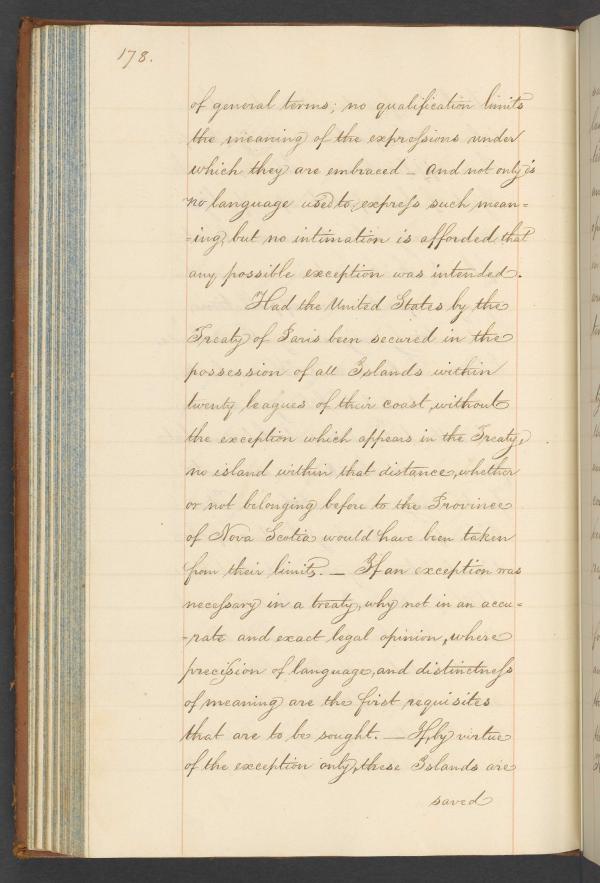 178.
of general terms; no qualification limits
the meaning of the expressions under
which they are embraced — and not only is
no language used to express such mean=
=ing, but no intimation is afforded that
any possible exception was intended.
Had the United States by the
Treaty of Paris been secured in the
possession of all Islands within
twenty leagues of their coast, without
the exception which appears in the Treaty,
no island within that distance, whether
or not belonging before to the Province
of Nova Scotia would have been taken
from their limits. — If an exception was
necessary in a treaty, why not in an accu=
=rate and exact legal opinion, where
precision of language, and distinctness
of meaning are the first requisites
that are to be sought. — If, by virtue
of the exception only, these Islands are
saved